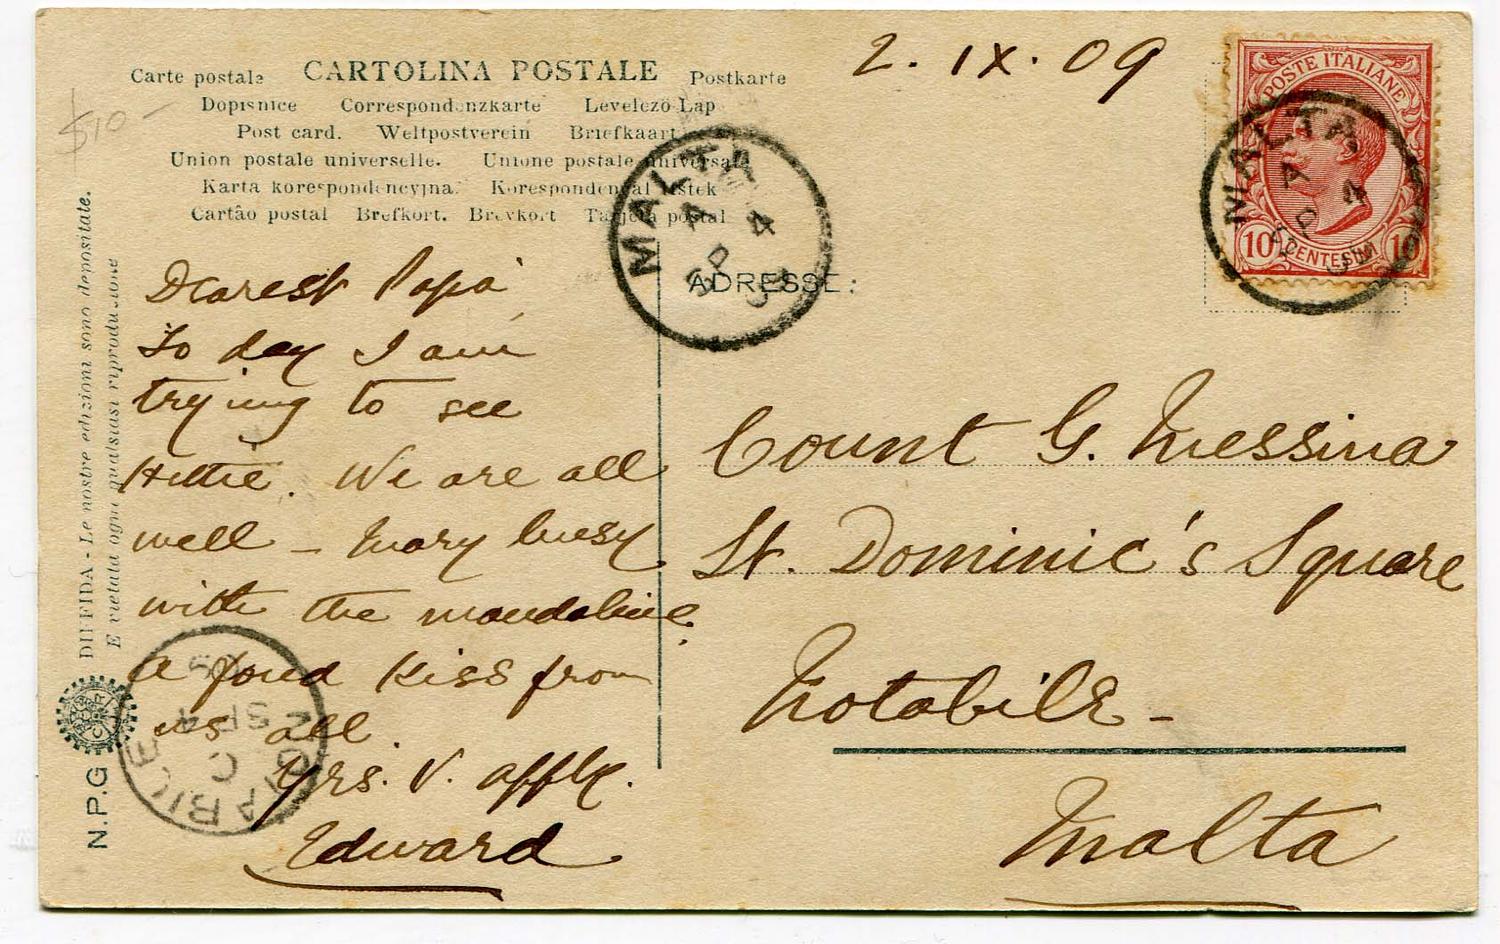 2. IX. 09
Carte postale CARTOLINA POSTALE Postkarte
Dopisnice Correspondenzkarte Levelező-Lap
Post card. Weltpostverein Briefkaart
Union postale universelle. Unione postale universale
Karta korespondencyjna. Korespondenčal listek
Cartão postal Brefkort. Brevkort Tarjeta postal
$10-
POSTE ITALIANE
10 CENTESIMI 10
MALTA
A
SP 4
09
MALTA
A
SP 4
09
ADRESSE:
Dearest Papa
To day I am
trying to see
Hettie. We are all
well - Mary busy
with the mandoline.
a fond kiss from
us all.
Yrs. V. affly.
Edward
Count G. Messina
St. Dominic's Square
Notabile -
Malta
DIFFIDA - Le nostre edizioni sono depositate.
E vietata ogni qualsiasi riproduzione
N.P.G
NOTABILE
C
SP 4
09